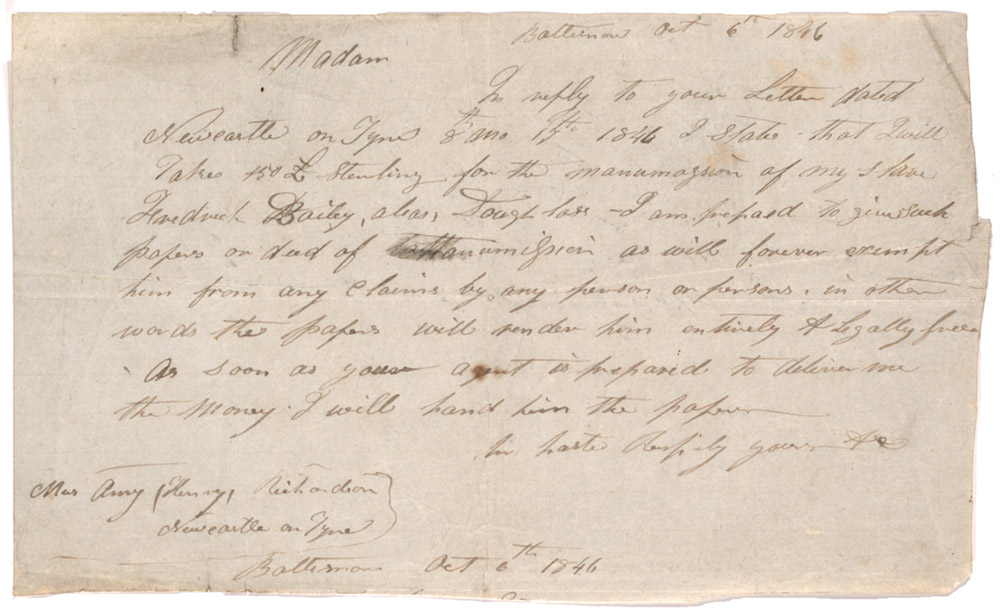 Baltimore Oct 6th 1846
Madam
In reply to your Letter dated
Newcastle on Tyne 8th mo 17th 1846 I State that I will
Take 150 £ Sterling for the manumission of my slave
Fredrick Bailey, alias, Douglass – I am prepard to give such
papers or deed of Manumission as will forever exempt
him from any Claims by any person or persons. in other
words the papers will render him entirely & Legally free
As soon as your agent is prepared to deliver me
the Money I will hand him the papers
In haste Respfly yours &c
Mrs Amy (Henry) Richardson
Newcastle on Tyne
Baltimore Oct 6th 1846